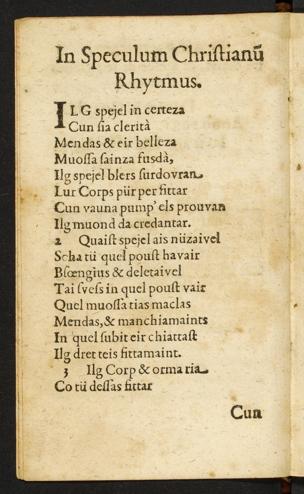 In Speculum Christianū
Rhytmus.
ILG spejel in certeza
Cun sia clerità
Mendas & eir belleza
Muossa sainza fusdà,
Ilg spejel blers surdovran
Lur Corps pür per fittar
Cun vauna pump' els prouvan
Ilg muond da credantar.
2 Quaist spejel ais nüzaivel
Scha tü quel poust havair
Bsœngius & deletaivel
Tai svess in quel poust vair
Quel muossa tias maclas
Mendas, & manchiamaints
In quel subit eir chiattast
Ilg dret teis fittamaint.
3 Ilg Corp & orma ria
Co tü dessas fittar
Cun